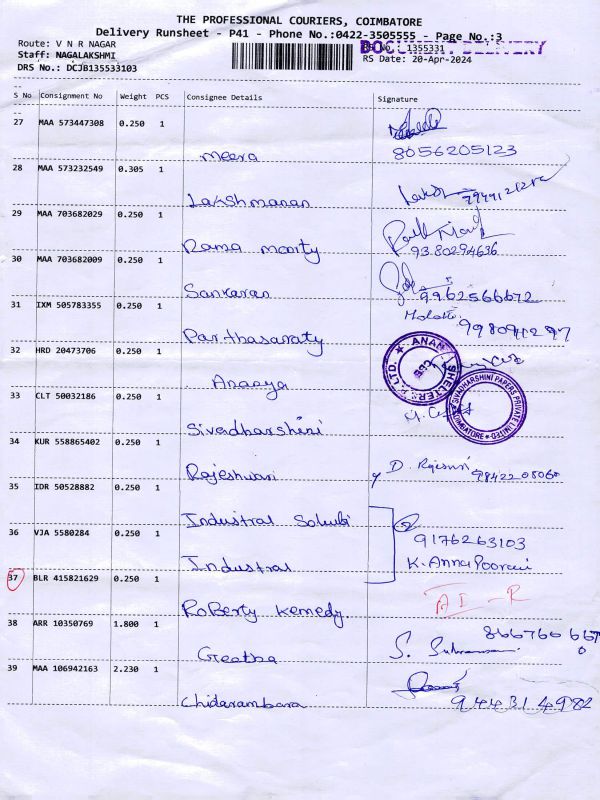 THE PROFESSIONAL COURIERS, COIMBATORE
Delivery Runsheet - P41 - Phone No.:0422-3505555 - Page No.:3
Route: V N R NAGAR
DOCUMENT DELIVERY
RS No. 1355331
Staff: NAGALAKSHMI
RS Date: 20-Apr-2024
DRS No.: DCJB135533103
S No Consignment No Weight PCS Consignee Details Signature
27 MAA 573447308 0.250 1
Meera 8056205123
28 MAA 573232549 0.305 1
Lakshmanan
29 MAA 703682029 0.250 1
Rama moorty 9380294636
30 MAA 703682009 0.250 1
Sankaran 9962566672
31 IXM 505783355 0.250 1
Parthasaraty
32 HRD 20473706 0.250 1
ANAM SHELTERS P. LTD. CBE
Ananya
33 CLT 50032186 0.250 1
SIVADHARSHINI PAPERS PRIVATE LIMITED COIMBATORE
Sivadharshini
34 KUR 558865402 0.250 1
Rajeshwari D. Rajeswari
35 IDR 50528882 0.250 1
Industrial
36 VJA 5580284 0.250 1
9176263103
Industrial K. Anna Poorani
37 BLR 415821629 0.250 1
Roberty kemedy. AI - R
38 ARR 10350769 1.800 1
Geetha S.
39 MAA 106942163 2.230 1
Chidarambara 944314982